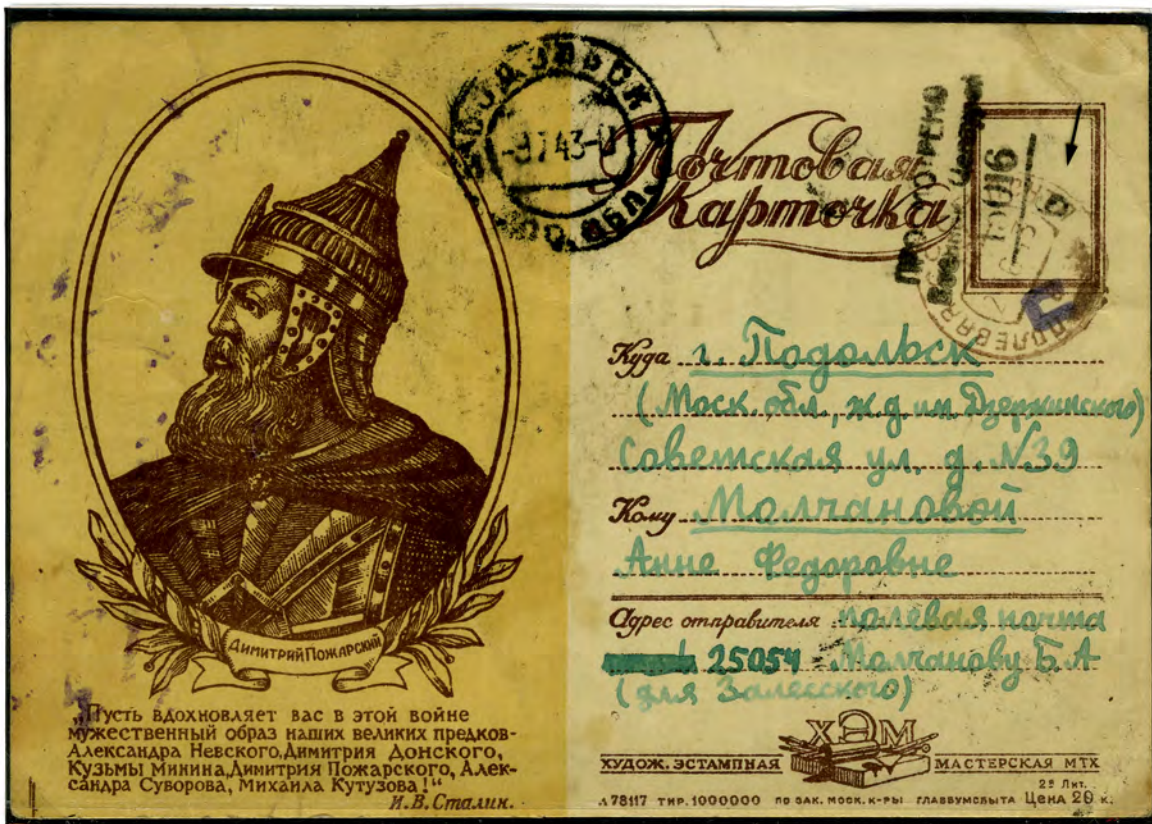 ДИМИТРИЙ ПОЖАРСКИЙ
„Пусть вдохновляет вас в этой войне
мужественный образ наших великих предков-
Александра Невского, Димитрия Донского,
Кузьмы Минина, Димитрия Пожарского, Алек-
сандра Суворова, Михаила Кутузова!“
И.В.Сталин.
ПОДОЛЬСК
-9 7 43-
ОБЛ.
Почтовая
Карточка
ПРОСМОТРЕНО
Военной Цензурой
15016
ПОЛЕВАЯ
Куда г. Подольск
(Моск. обл., ж.д. им. Дзержинского)
Советская ул. д. №39
Кому Молчановой
Анне Федоровне
Адрес отправителя полевая почта
25054 Молчанову Б.А
(для Залесского)
ХЭМ
ХУДОЖ. ЭСТАМПНАЯ МАСТЕРСКАЯ МТХ
78117 ТИР. 1000000 ПО ЗАК. МОСК. К-РЫ ГЛАВБУМСБЫТА Цена 20 к.